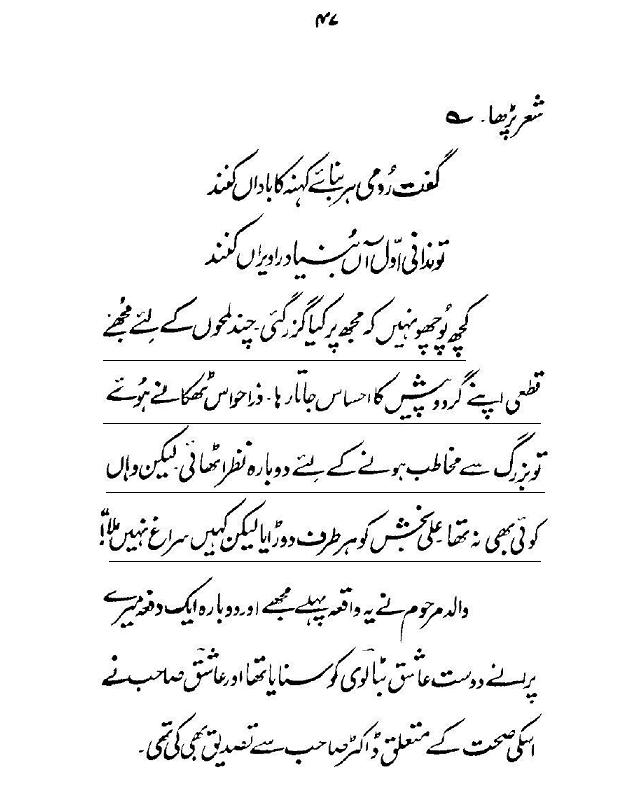 ۴۷
شعر پڑھا۔ ؎
گفت رُومی ہر بِنائے کہنہ کاباداں کنند
تو ندانی اوّل آں بُنیاد را ویراں کنند
کچھ پُوچھو نہیں کہ مجھ پر کیا گزر گئی۔ چند لمحوں کے لِئے مُجھے
قطعی اپنے گردوپیش کا احساس جاتا رہا۔ ذرا حواس ٹھکانے ہُوئے
تو بزرگ سے مخاطب ہونے کے لِئے دوبارہ نظر اٹھائی لیکن وہاں
کوئی بھی نہ تھا علی بخش کو ہر طرف دوڑایا لیکن کہیں سراغ نہیں ملا"!
والد مرحوم نے یہ واقعہ پہلے مجھے اور دوبارہ ایک دفعہ میرے
پرانے دوست عاشق بٹالوی کو سنایا تھا اور عاشق صاحب نے
اسکی صحت کے متعلق ڈاکٹر صاحب سے تصدیق بھی کی تھی۔